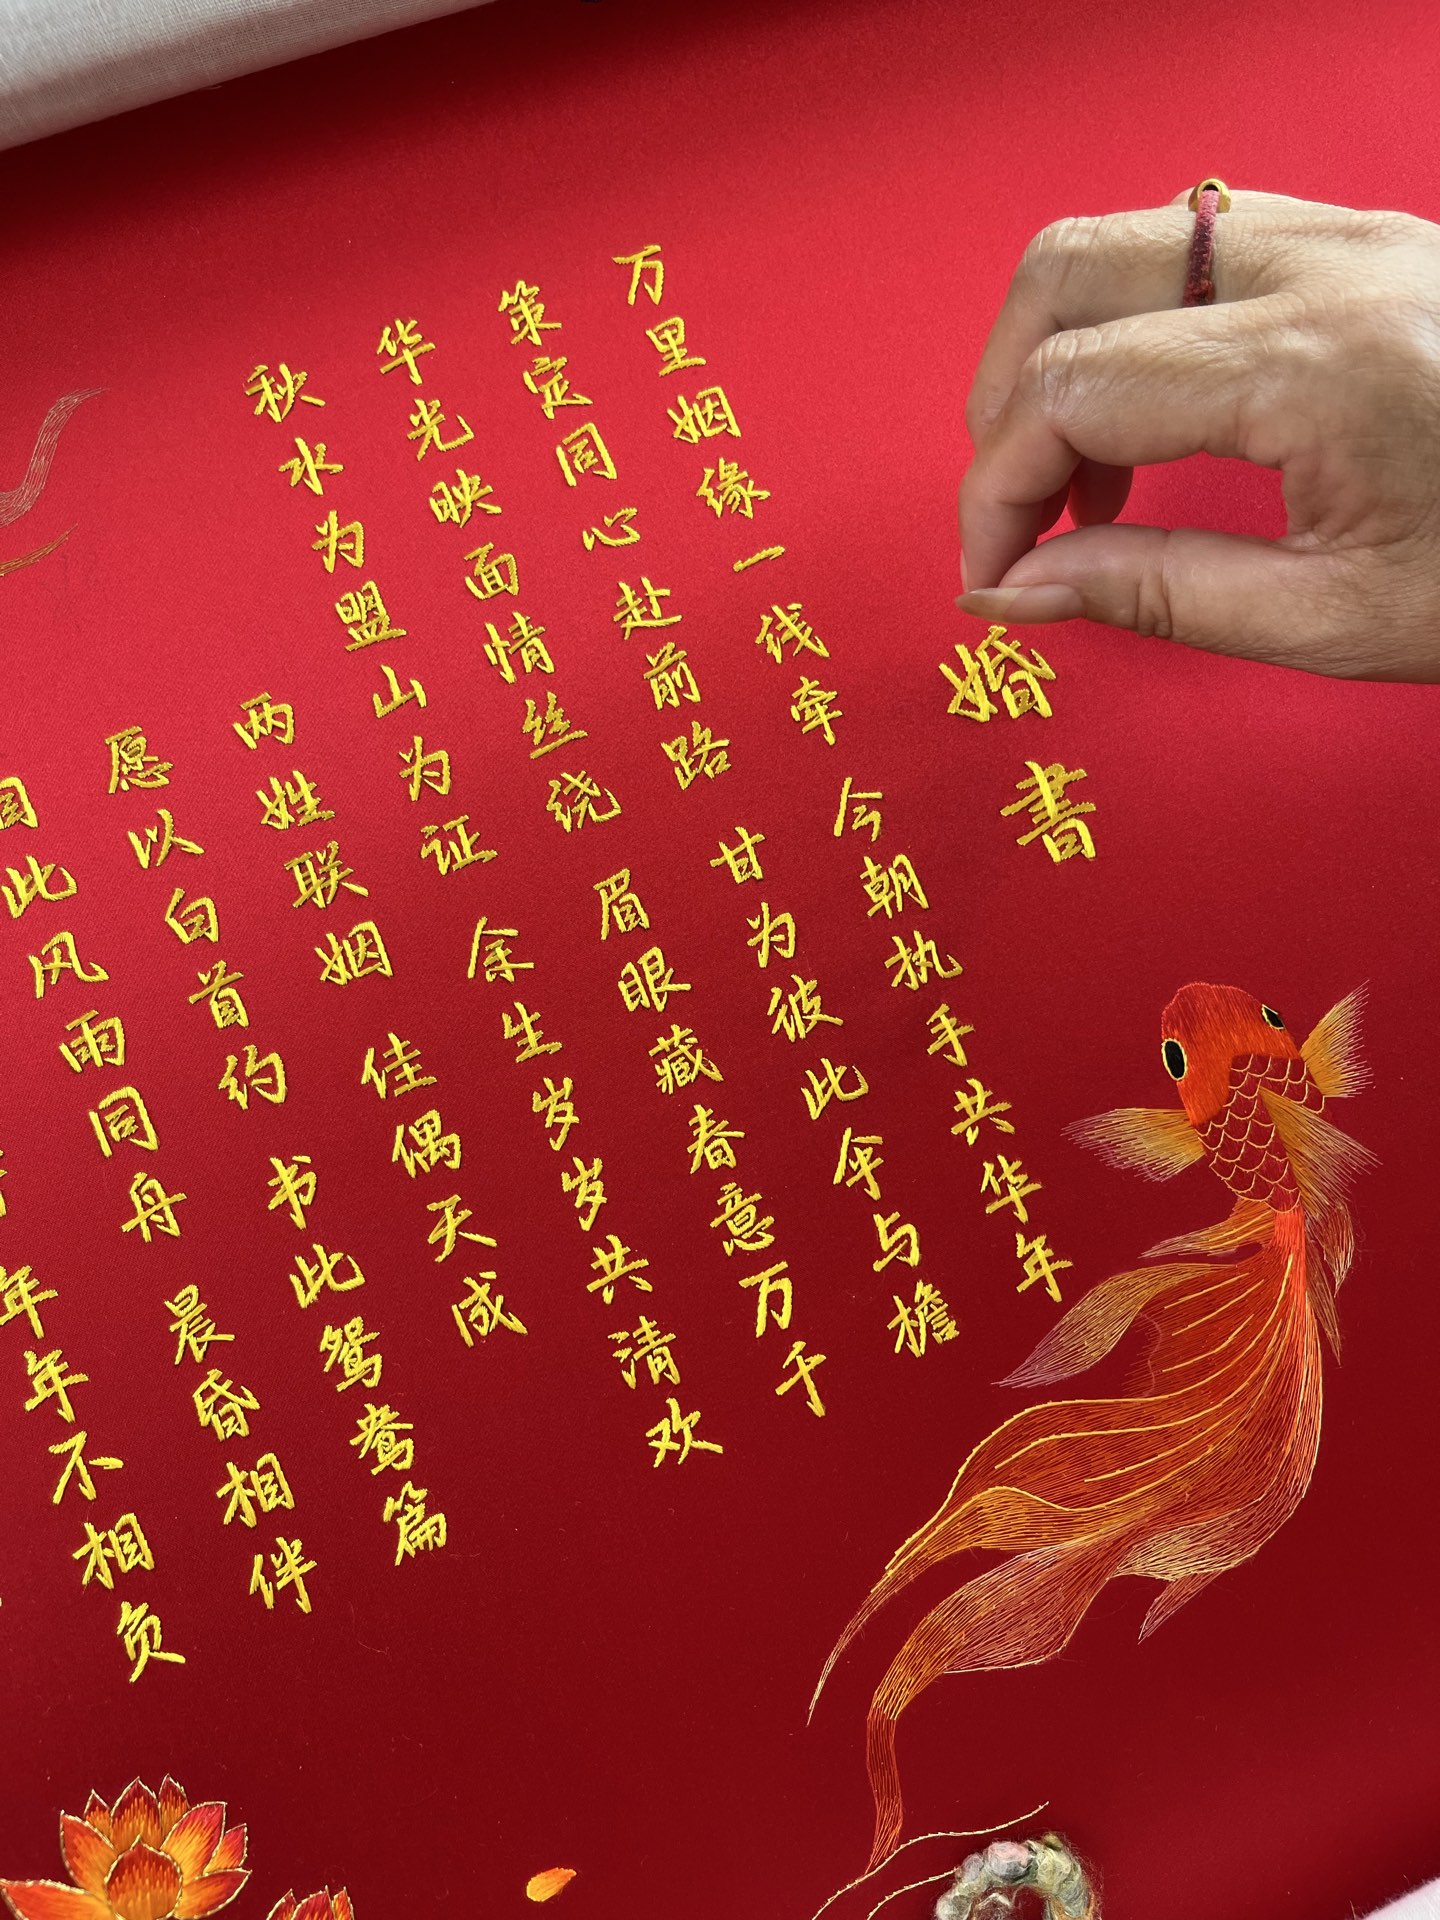 婚書
万里姻缘一线牵 今朝执手共华年
策定同心赴前路 甘为彼此伞与檐
华光映面情丝绕 眉眼藏春意万千
秋水为盟山为证 余生岁岁共清欢
两姓联姻 佳偶天成
愿以白首约 书此鸳鸯篇
自此风雨同舟 晨昏相伴
年年不相负